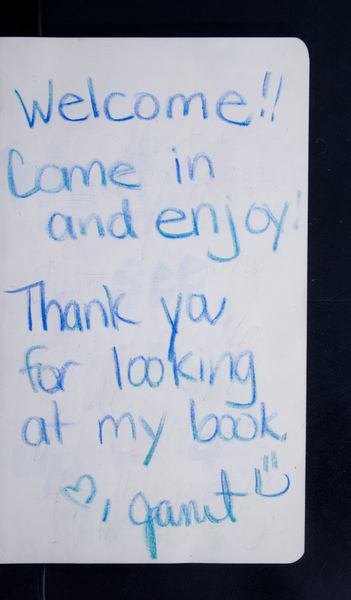 Welcome!!
Come in
and enjoy!
Thank you
for looking
at my book.
♡, Janet